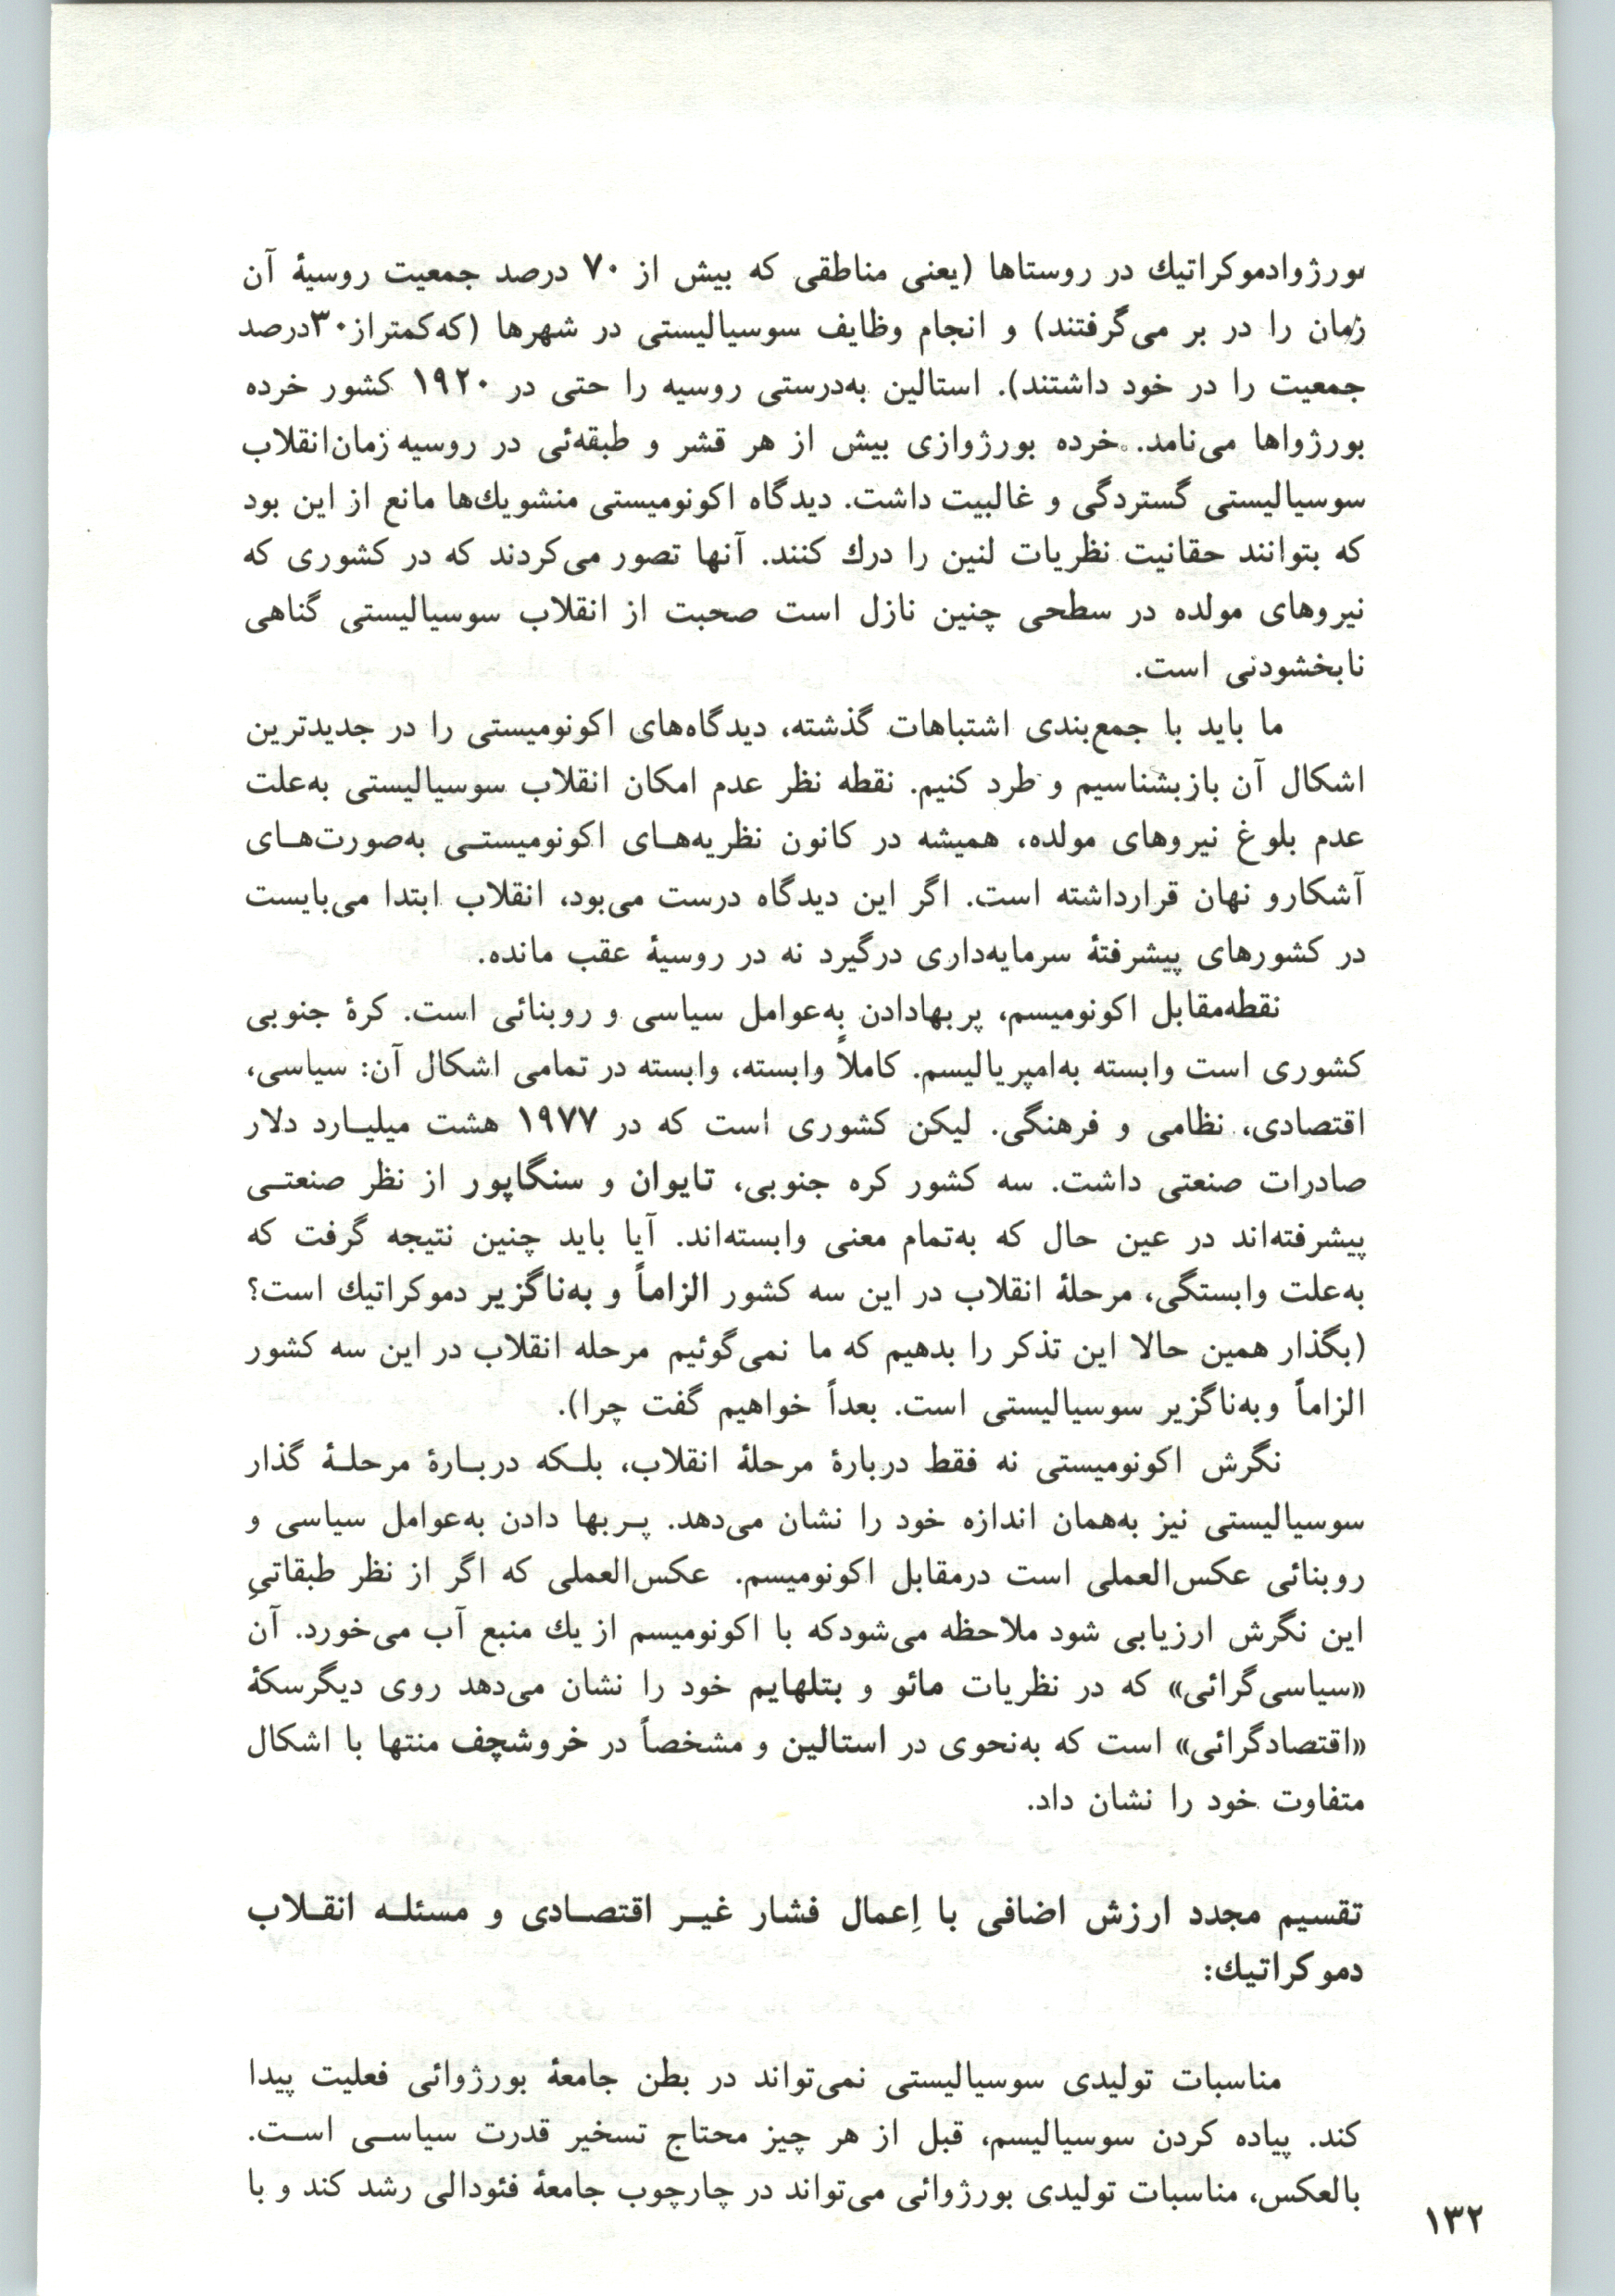 بورژوادموکراتیك در روستاها (یعنی مناطقی که بیش از ۷۰ درصد جمعیت روسیهٔ آن
زمان را در بر می‌گرفتند) و انجام وظایف سوسیالیستی در شهرها (که‌کمتراز۳۰درصد
جمعیت را در خود داشتند). استالین به‌درستی روسیه را حتی در ۱۹۲۰ کشور خرده
بورژواها می‌نامد. خرده بورژوازی بیش از هر قشر و طبقه‌ئی در روسیه زمان‌انقلاب
سوسیالیستی گستردگی و غالبیت داشت. دیدگاه اکونومیستی منشویك‌ها مانع از این بود
که بتوانند حقانیت نظریات لنین را درك کنند. آنها تصور می‌کردند که در کشوری که
نیروهای مولده در سطحی چنین نازل است صحبت از انقلاب سوسیالیستی گناهی
نابخشودنی است.
ما باید با جمع‌بندی اشتباهات گذشته، دیدگاه‌های اکونومیستی را در جدیدترین
اشکال آن بازبشناسیم و طرد کنیم. نقطه نظر عدم امکان انقلاب سوسیالیستی به‌علت
عدم بلوغ نیروهای مولده، همیشه در کانون نظریه‌هـای اکونومیستـی به‌صورت‌هـای
آشکارو نهان قرارداشته است. اگر این دیدگاه درست می‌بود، انقلاب ابتدا می‌بایست
در کشورهای پیشرفتهٔ سرمایه‌داری درگیرد نه در روسیهٔ عقب مانده.
نقطه‌مقابل اکونومیسم، پربهادادن به‌عوامل سیاسی و روبنائی است. کرهٔ جنوبی
کشوری است وابسته به‌امپریالیسم. کاملاً وابسته، وابسته در تمامی اشکال آن: سیاسی،
اقتصادی، نظامی و فرهنگی. لیکن کشوری است که در ۱۹۷۷ هشت میلیـارد دلار
صادرات صنعتی داشت. سه کشور کره جنوبی، تایوان و سنگاپور از نظر صنعتـی
پیشرفته‌اند در عین حال که به‌تمام معنی وابسته‌اند. آیا باید چنین نتیجه گرفت که
به‌علت وابستگی، مرحلهٔ انقلاب در این سه کشور الزاماً و به‌ناگزیر دموکراتیك است؟
(بگذار همین حالا این تذکر را بدهیم که ما نمی‌گوئیم مرحله انقلاب در این سه کشور
الزاماً وبه‌ناگزیر سوسیالیستی است. بعداً خواهیم گفت چرا).
نگرش اکونومیستی نه فقط دربارهٔ مرحلهٔ انقلاب، بلـکه دربـارهٔ مرحلـهٔ گذار
سوسیالیستی نیز به‌همان اندازه خود را نشان می‌دهد. پـربها دادن به‌عوامل سیاسی و
روبنائی عکس‌العملی است درمقابل اکونومیسم. عکس‌العملی که اگر از نظر طبقاتیِ
این نگرش ارزیابی شود ملاحظه می‌شودکه با اکونومیسم از یك منبع آب می‌خورد. آن
«سیاسی‌گرائی» که در نظریات مائو و بتلهایم خود را نشان می‌دهد روی دیگرسکهٔ
«اقتصادگرائی» است که به‌نحوی در استالین و مشخصاً در خروشچف منتها با اشکال
متفاوت خود را نشان داد.
تقسیم مجدد ارزش اضافی با اِعمال فشار غیـر اقتصـادی و مسئلـه انقـلاب
دموکراتیك:
مناسبات تولیدی سوسیالیستی نمی‌تواند در بطن جامعهٔ بورژوائی فعلیت پیدا
کند. پیاده کردن سوسیالیسم، قبل از هر چیز محتاج تسخیر قدرت سیاسـی اسـت.
بالعکس، مناسبات تولیدی بورژوائی می‌تواند در چارچوب جامعهٔ فئودالی رشد کند و با
۱۳۲